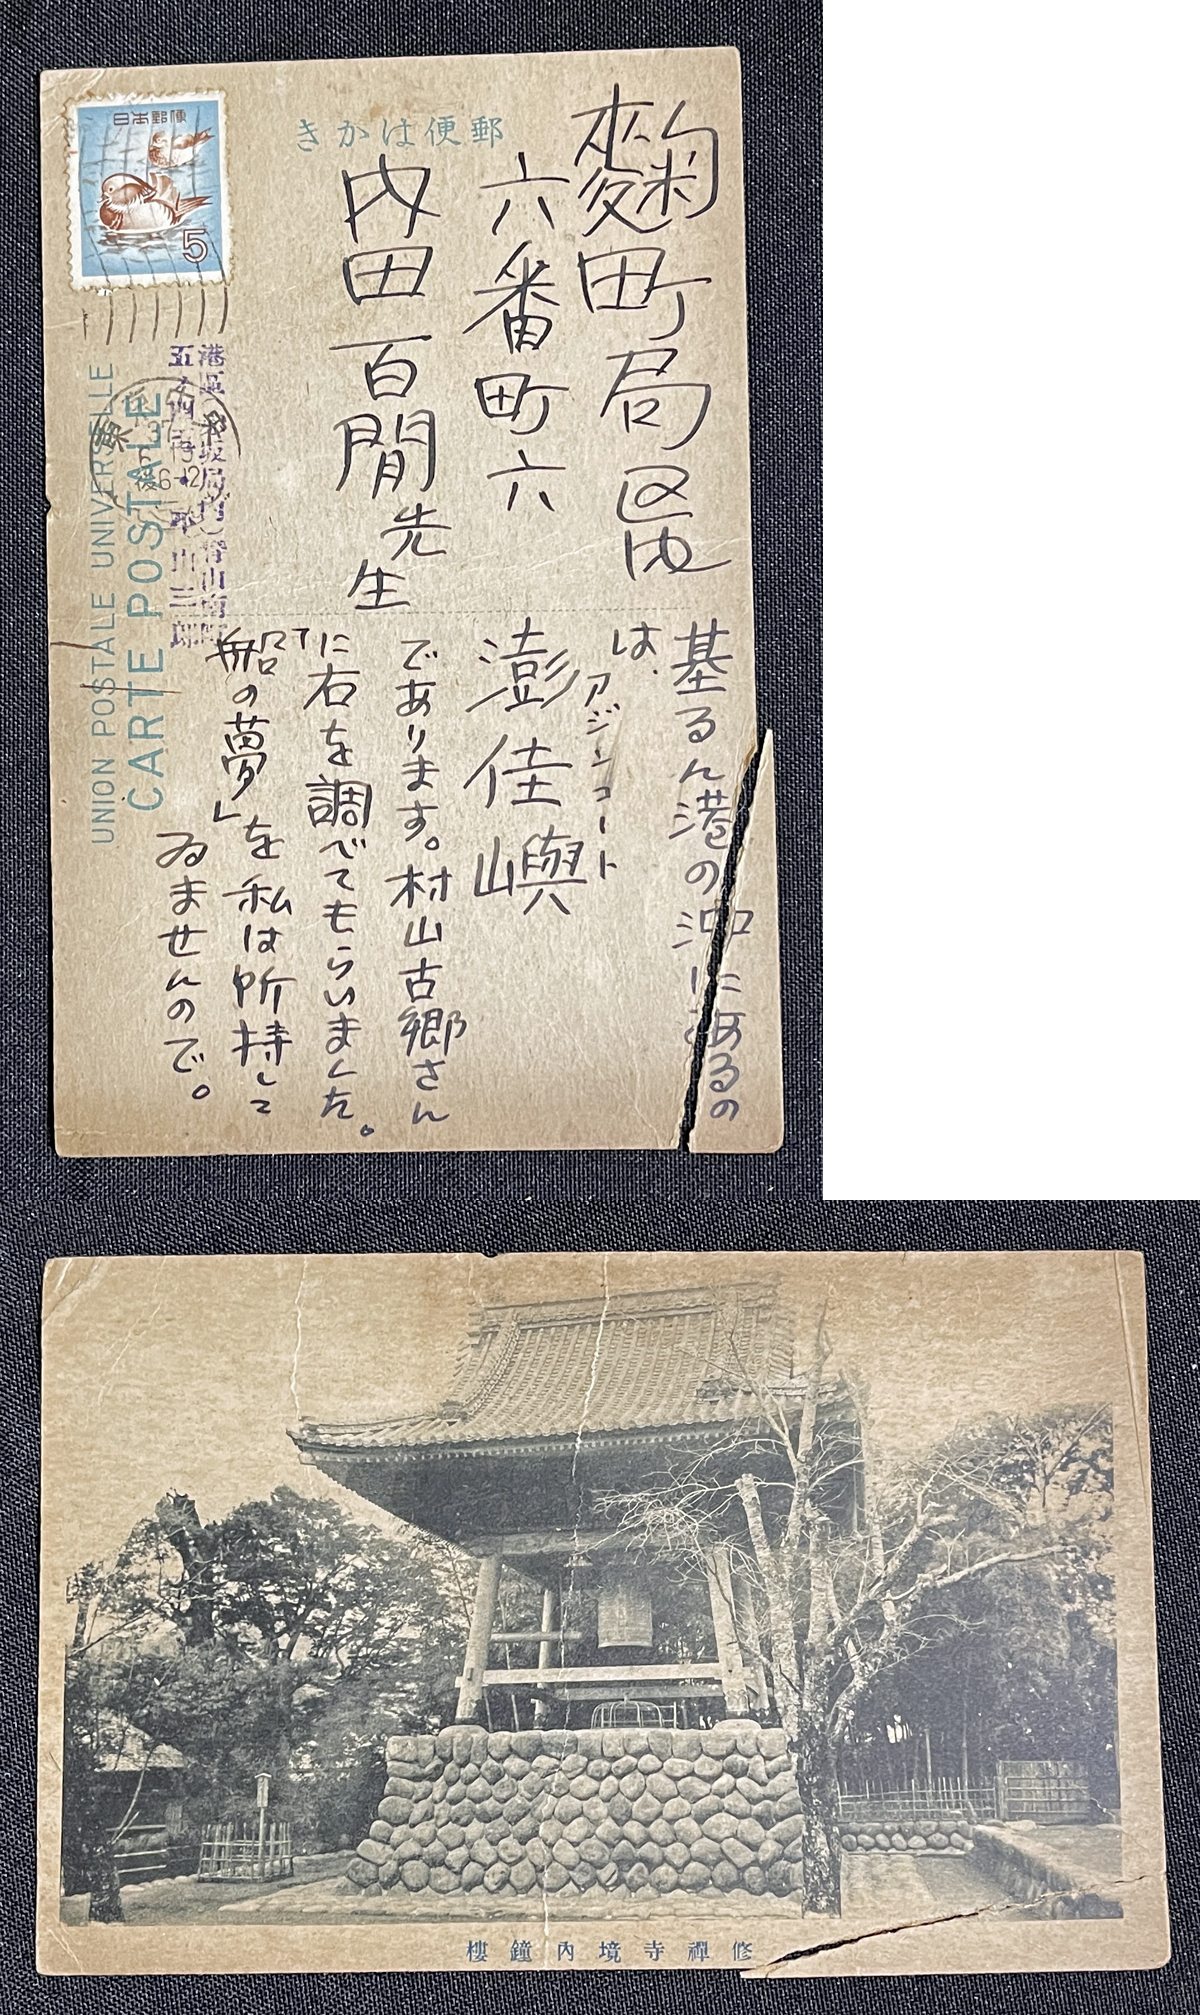 日本郵便
5
郵便はかき
麹町局区内
六番町六
内田百閒先生
港區(赤坂局內)青山南町
五ノ四五
平山三郎
東京
37
後6-12
UNION POSTALE UNIVERSELLE
CARTE POSTALE
基るん港の沖にあるの
は、
アジンコート
澎佳嶼
であります。村山古郷さん
に右を調べてもらいました。
「船の夢」を私は所持して
ゐませんので。
修禪寺境內鐘樓